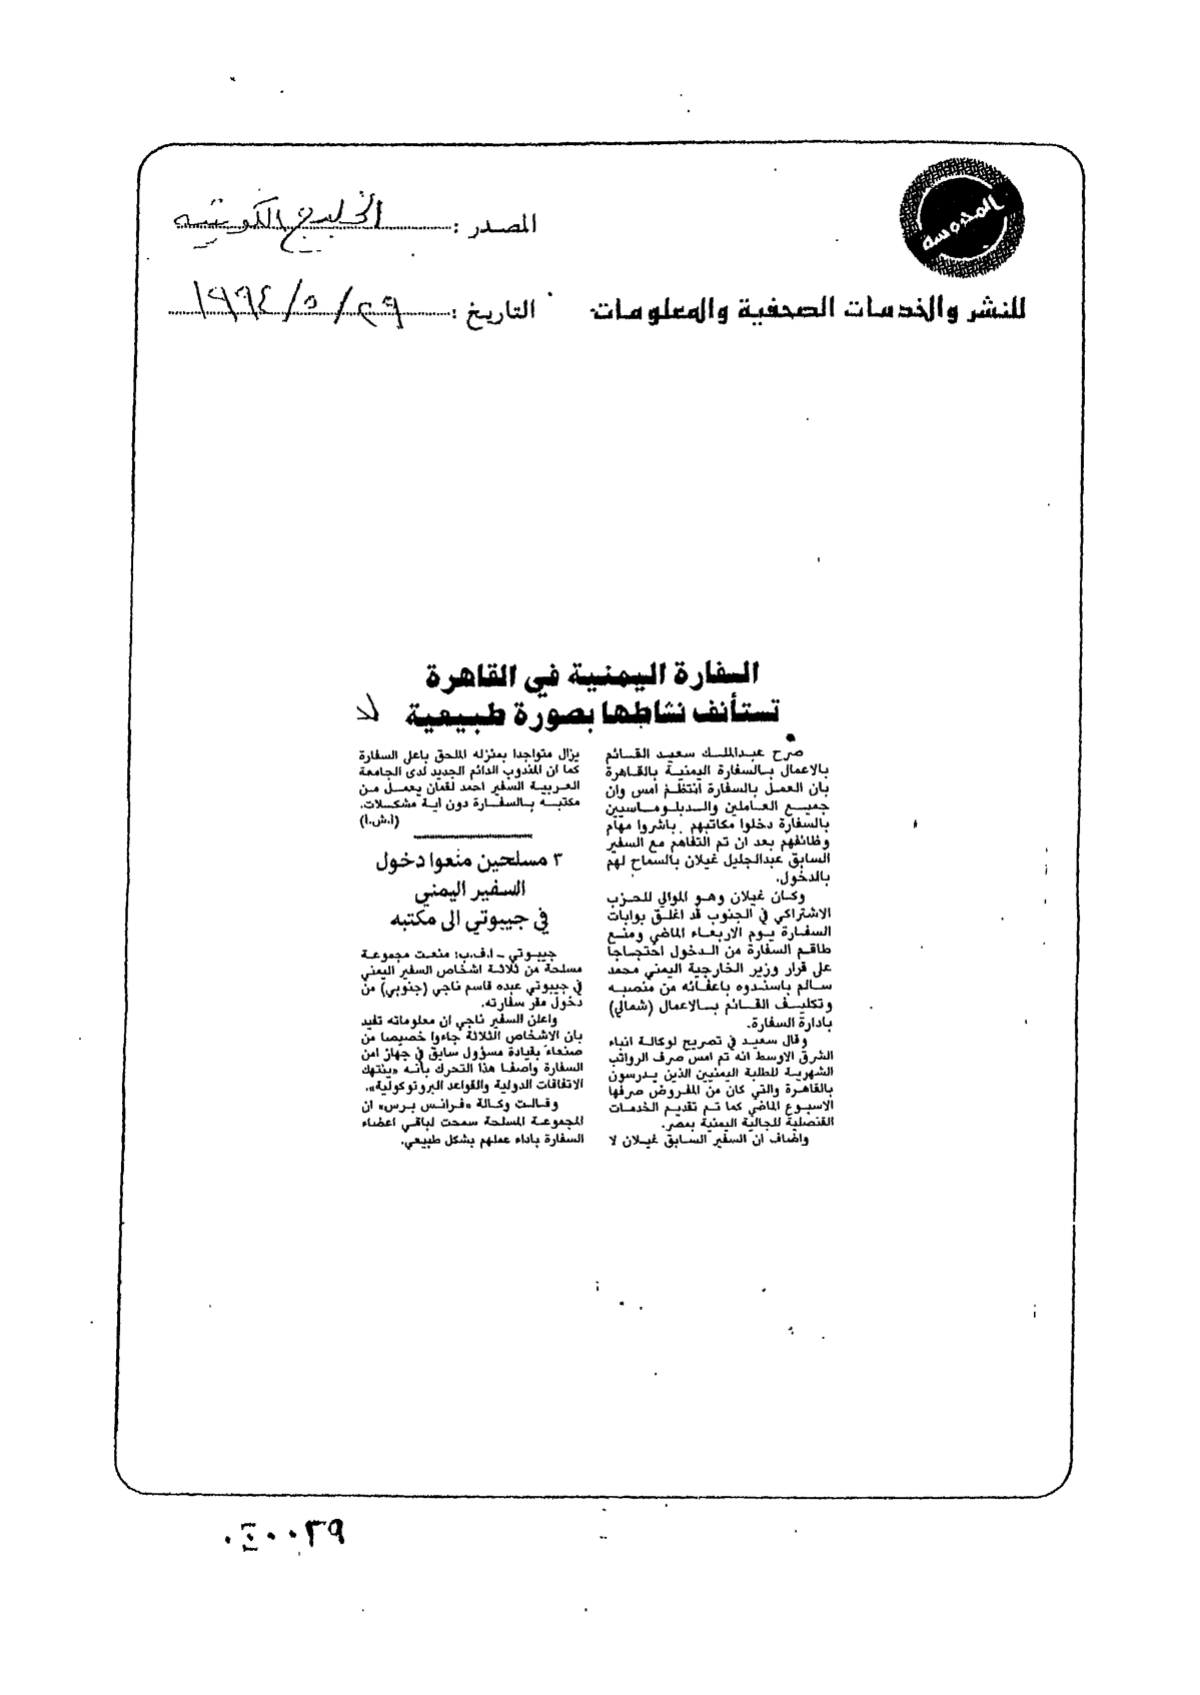 المحروسة
للنشر والخدمات الصحفية والمعلومات
المصدر : الخليج الكويتيه
التاريخ : ٢٩ / ٥ / ١٩٩٤
السفارة اليمنية في القاهرة
تستأنف نشاطها بصورة طبيعية
صرح عبدالملك سعيد القائم
بالاعمال بالسفارة اليمنية بالقاهرة
بان العمل بالسفارة انتظم امس وان
جميع العاملين والدبلوماسيين
بالسفارة دخلوا مكاتبهم باشروا مهام
وظائفهم بعد ان تم التفاهم مع السفير
السابق عبدالجليل غيلان بالسماح لهم
بالدخول.
وكان غيلان وهو الموالي للحزب
الاشتراكي في الجنوب قد اغلق بوابات
السفارة يوم الاربعاء الماضي ومنع
طاقم السفارة من الدخول احتجاجا
على قرار وزير الخارجية اليمني محمد
سالم باسندوه باعفائه من منصبه
وتكليف القائم بالاعمال (شمالي)
بادارة السفارة.
وقال سعيد في تصريح لوكالة انباء
الشرق الاوسط انه تم امس صرف الرواتب
الشهرية للطلبة اليمنيين الذين يدرسون
بالقاهرة والتي كان من المفروض صرفها
الاسبوع الماضي كما تم تقديم الخدمات
القنصلية للجالية اليمنية بمصر.
واضاف ان السفير السابق غيلان لا
يزال متواجدا بمنزله الملحق باعلى السفارة
كما ان المندوب الدائم الجديد لدى الجامعة
العربية السفير احمد لقمان يعمل من
مكتبه بالسفارة دون اية مشكلات.
(أ.ش.أ)
٣ مسلحين منعوا دخول
السفير اليمني
في جيبوتي الى مكتبه
جيبوتي - ا.ف.ب: منعت مجموعة
مسلحة من ثلاثة اشخاص السفير اليمني
في جيبوتي عبده قاسم ناجي (جنوبي) من
دخول مقر سفارته.
واعلن السفير ناجي ان معلوماته تفيد
بان الاشخاص الثلاثة جاءوا خصيصا من
صنعاء بقيادة مسؤول سابق في جهاز امن
السفارة واصفا هذا التحرك بأنه «ينتهك
الاتفاقات الدولية والقواعد البروتوكولية».
وقالت وكالة «فرانس برس» ان
المجموعة المسلحة سمحت لباقي اعضاء
السفارة باداء عملهم بشكل طبيعي.
٠٤٠٠٢٩